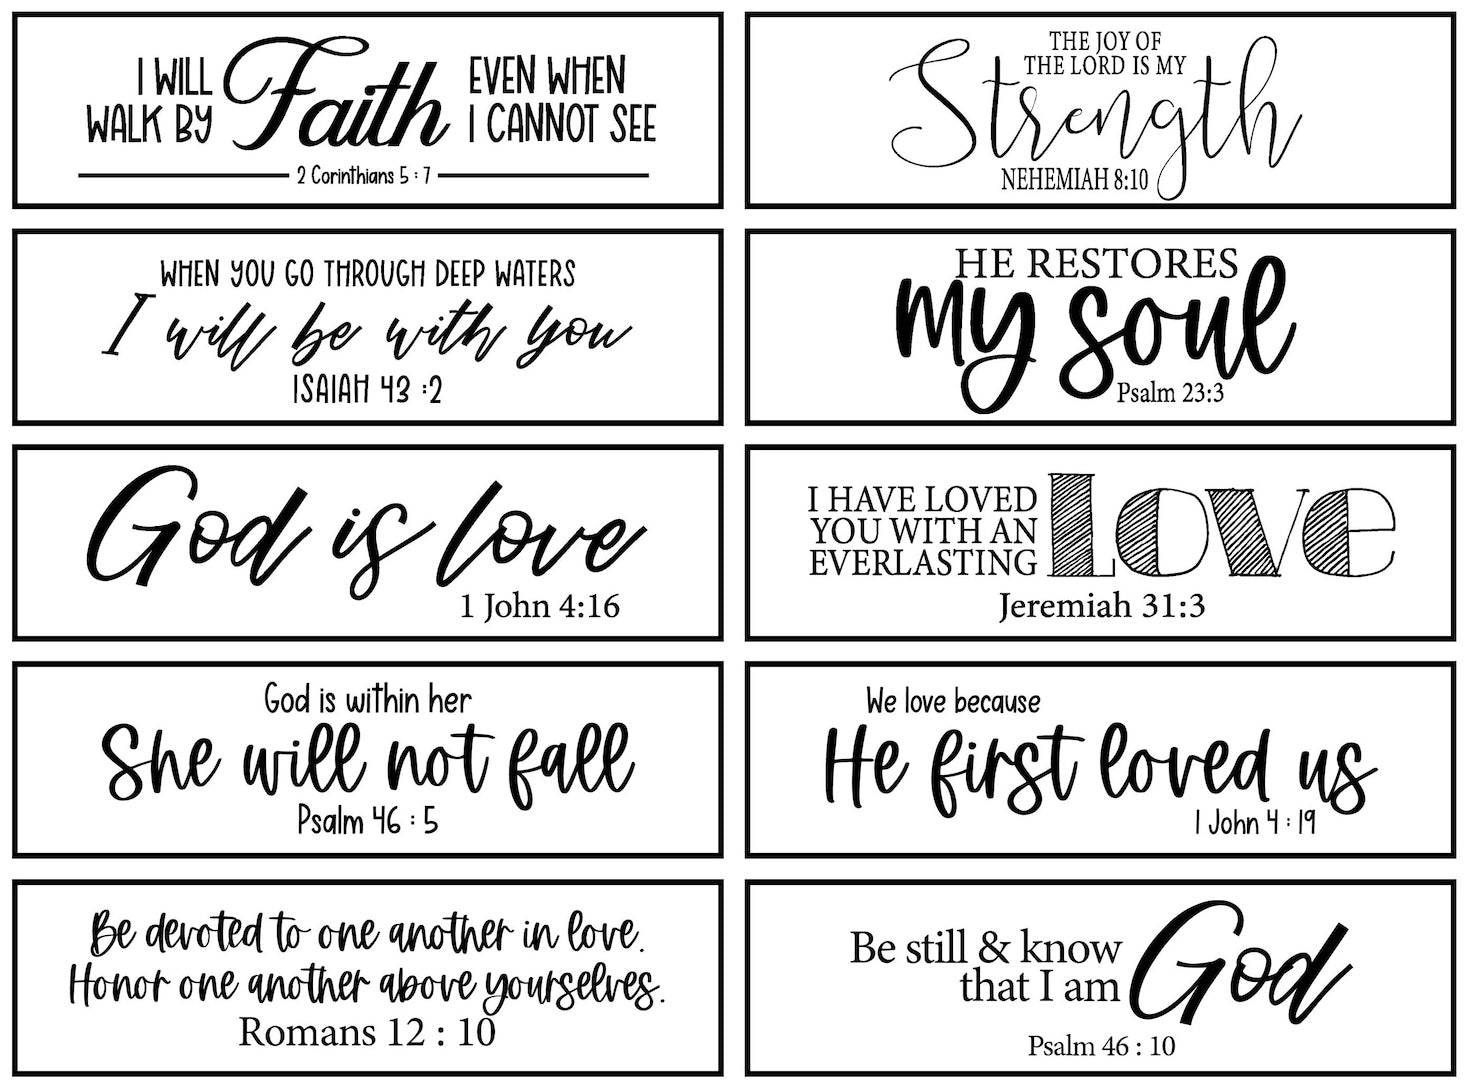 I WILL
WALK BY
Faith
EVEN WHEN
I CANNOT SEE
2 Corinthians 5 : 7
THE JOY OF
THE LORD IS MY
Strength
NEHEMIAH 8:10
WHEN YOU GO THROUGH DEEP WATERS
I will be with you
ISAIAH 43 :2
HE RESTORES
my soul
Psalm 23:3
God is love
1 John 4:16
I HAVE LOVED
YOU WITH AN
EVERLASTING
Love
Jeremiah 31:3
God is within her
She will not fall
Psalm 46 : 5
We love because
He first loved us
1 John 4 : 19
Be devoted to one another in love.
Honor one another above yourselves.
Romans 12 : 10
Be still & know
that I am
God
Psalm 46 : 10